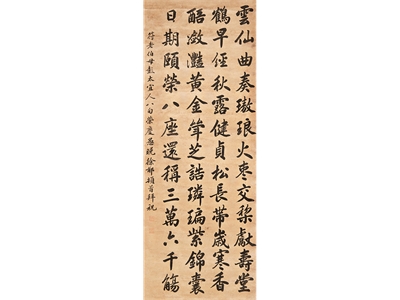 雲仙曲奏璈琅火棗交棃獻壽堂
鶴早經秋露健貞松長帶歲寒香
醅瀲灩黃金斝芝誥璘紫錦囊
日期頤榮八座還稱三萬六千觴
符老伯母彭太宜人八旬榮慶愚姪徐郙頓首拜祝